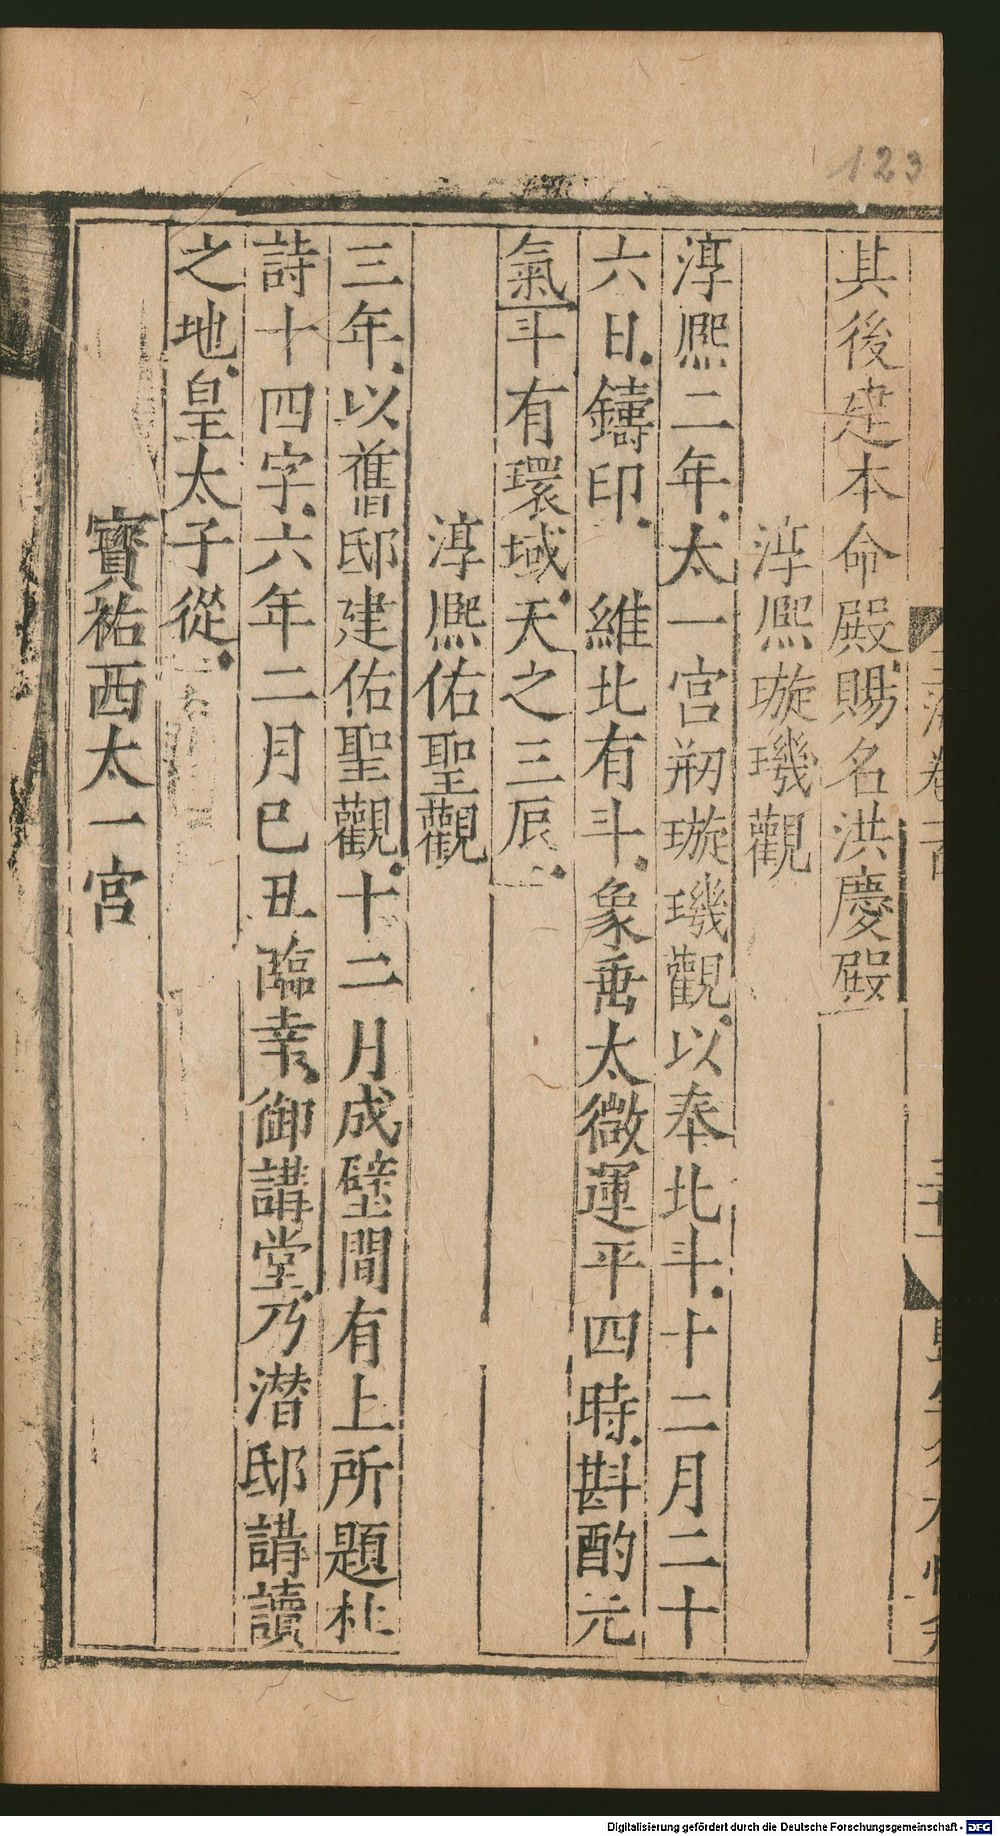 123
其後建本命殿賜名洪慶殿
淳熈璇璣觀
淳熈二年太一宮剏璇璣觀以奉北斗十二月二十
六日鑄印 維北有斗象垂太微運平四時斟酌元
氣斗有環域天之三辰
淳熈佑聖觀
三年以舊邸建佑聖觀十二月成壁間有上所題杜
詩十四字六年二月巳丑臨幸御講堂乃潛邸講讀
之地皇太子從
寶祐西太一宮
Digitalisierung gefördert durch die Deutsche Forschungsgemeinschaft - DFG